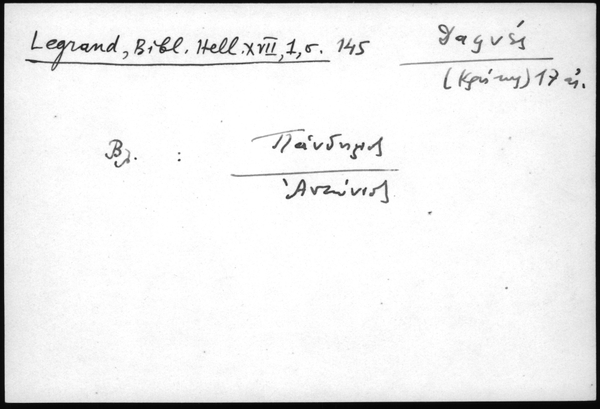 Legrand, Bibl. Hell. XVII, 1, σ. 145
Δαγνές
(Κρήτης) 17 αἰ.
Βλ. :
Πάνδημος
Ἀντώνιος